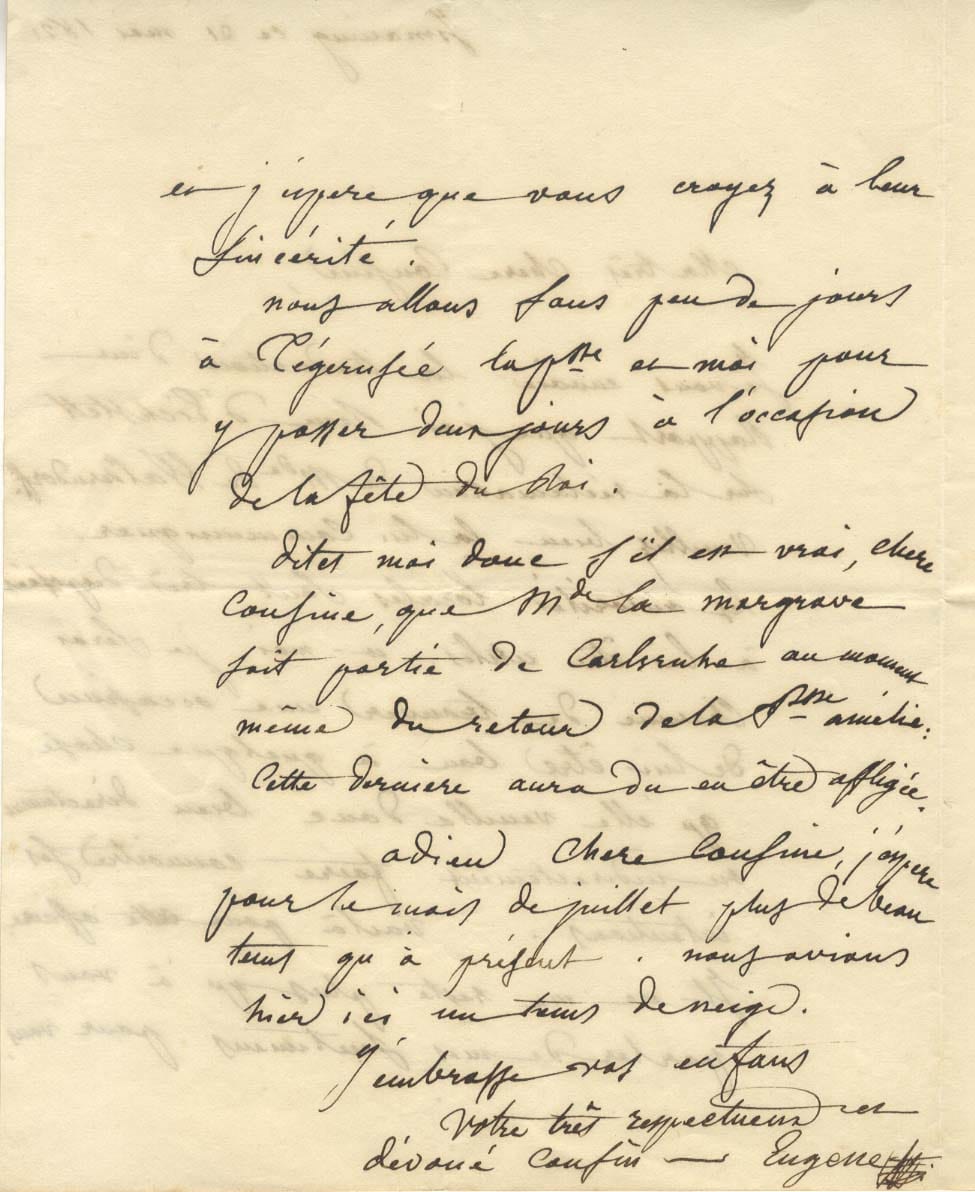 et j'espere que vous croyez à leur
sincérité.
nous allons sous peu de jours
à Tégernsée la psse et moi pour
y passer deux jours à l'occasion
de la fête du Roi.
dites moi donc s'il est vrai, chere
Cousine, que Mde la margrave
soit partie de Carlsruhe au moment
même du retour de la Psse amélie:
Cette derniere aura du en être affligée.
adieu chere Cousine, j'espere
pour le mois de juillet plus de beau
tems qu'à présent. nous avions
hier ici un tems de neige.
J'embrasse vos enfans
Votre très respectueux et
dévoué Cousin — Eugene